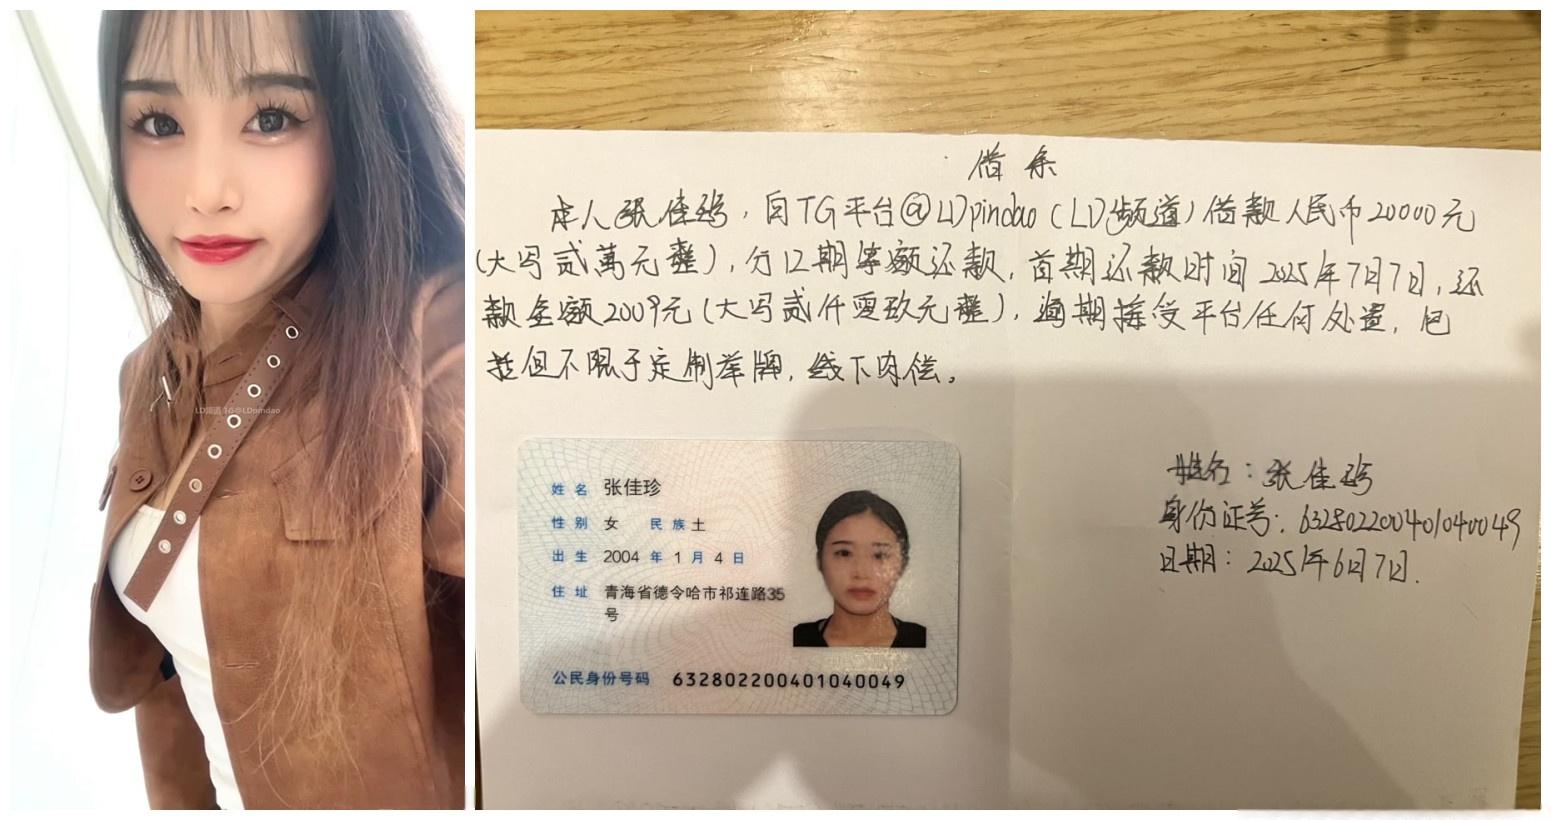 借条
本人[已隐去]，自TG平台@LDpindao（LD频道）借款人民币20000元
（大写贰萬元整），分12期等额还款，首期还款时间2025年7月7日，还
款金额2009元（大写贰仟零玖元整），逾期接受平台任何处置，包
括但不限于定制举牌，线下肉偿。
姓名：[已隐去]
身份证号：[已隐去]
日期：2025年6月7日.
姓名 [已隐去]
性别 女 民族 [已隐去]
出生 [已隐去]
住址 [已隐去]
公民身份号码 [已隐去]
LD频道 TG@LDpindao